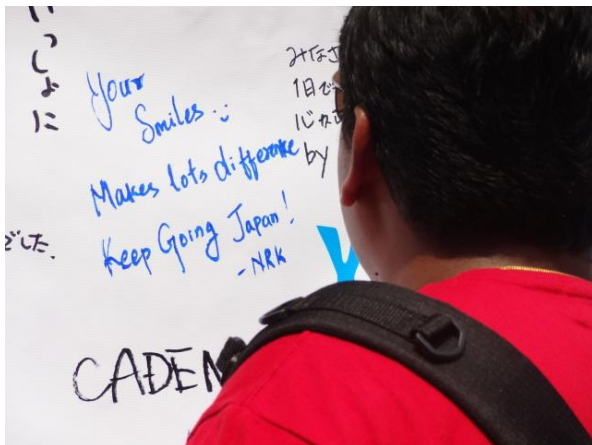 っしょに
Your
Smiles :)
Makes lots difference
Keep Going Japan!
-NRK
みなさ
1日で
by
でした.
CADEN